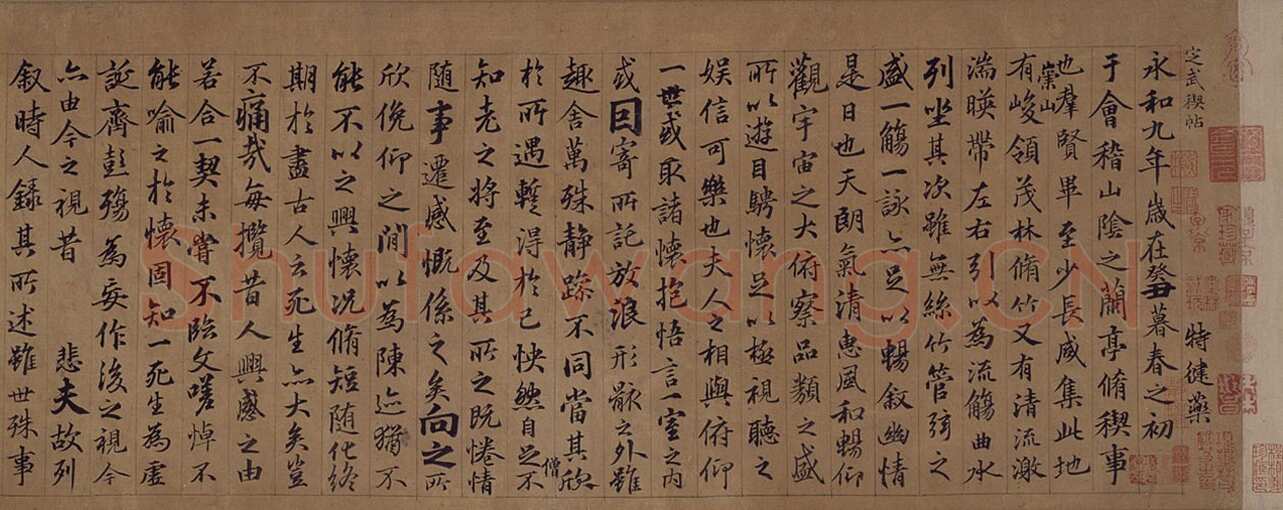 定武禊帖
特健藥
永和九年歲在癸丑暮春之初
于會稽山陰之蘭亭脩稧事
也羣賢畢至少長咸集此地
崇山
有峻領茂林脩竹又有清流激
湍暎帶左右引以為流觴曲水
列坐其次雖無絲竹管弦之
盛一觴一詠亦足以暢叙幽情
是日也天朗氣清惠風和暢仰
觀宇宙之大俯察品類之盛
所以遊目騁懷足以極視聽之
娛信可樂也夫人之相與俯仰
一世或取諸懷抱悟言一室之內
或因寄所託放浪形骸之外雖
趣舍萬殊静躁不同當其欣
於所遇暫得於己怏然自足不
僧
知老之將至及其所之既惓情
隨事遷感慨係之矣向之所
欣俛仰之閒以為陳迹猶不
能不以之興懷況脩短隨化終
期於盡古人云死生亦大矣豈
不痛哉每攬昔人興感之由
若合一契未嘗不臨文嗟悼不
能喻之於懷固知一死生為虛
誕齊彭殤為妄作後之視今
亦由今之視昔 悲夫故列
叙時人錄其所述雖世殊事
Shufawang.CN